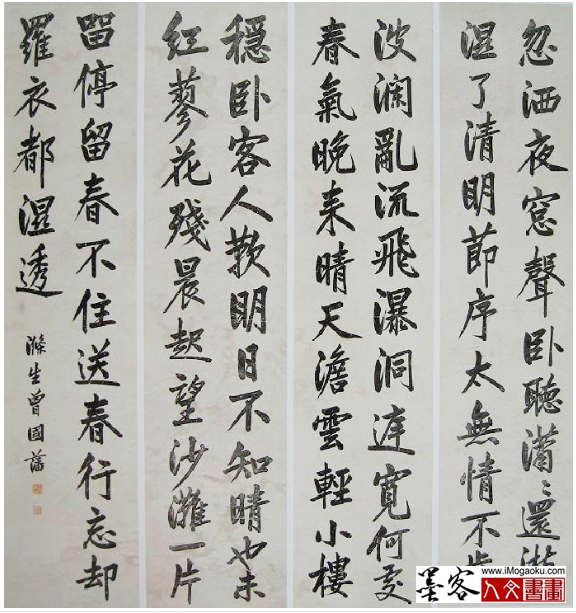 忽洒夜窓聲卧聽瀟〻還淅
湿了清明節序太無情不肯
波瀾亂流飛瀑洞庭寬何處
春氣晚来晴天澹雲輕小樓
穩卧客人歎明日不知晴也未
紅蓼花殘晨起望沙灘一片
留停留春不住送春行忘却
羅衣都湿透
滌生曾國藩
www.iMogaoku.com
墨客人文書畫